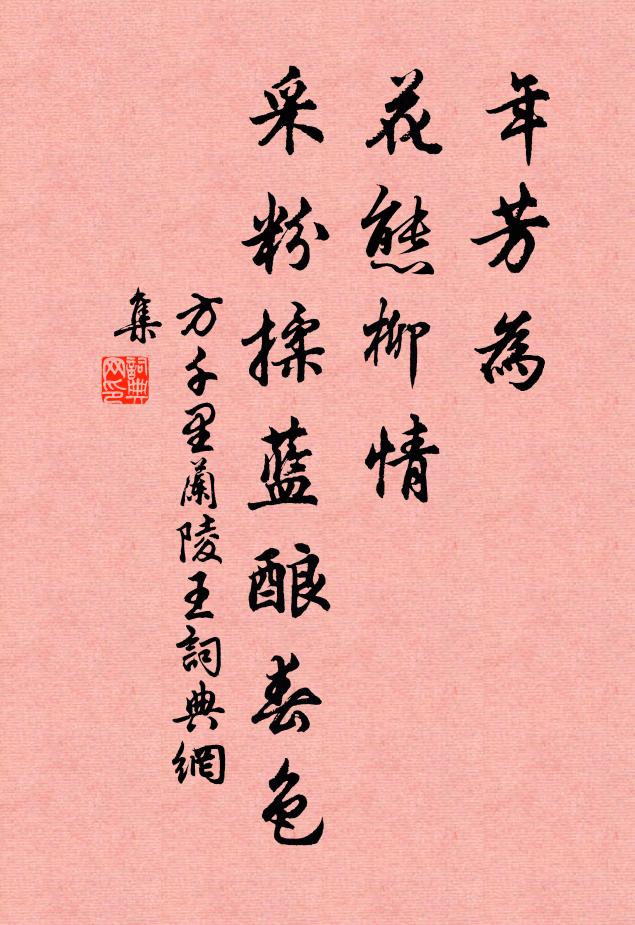 年芳為
花態柳情
采粉揉藍酿春色
方千里蘭陵王詞典網
集
詞典
网印